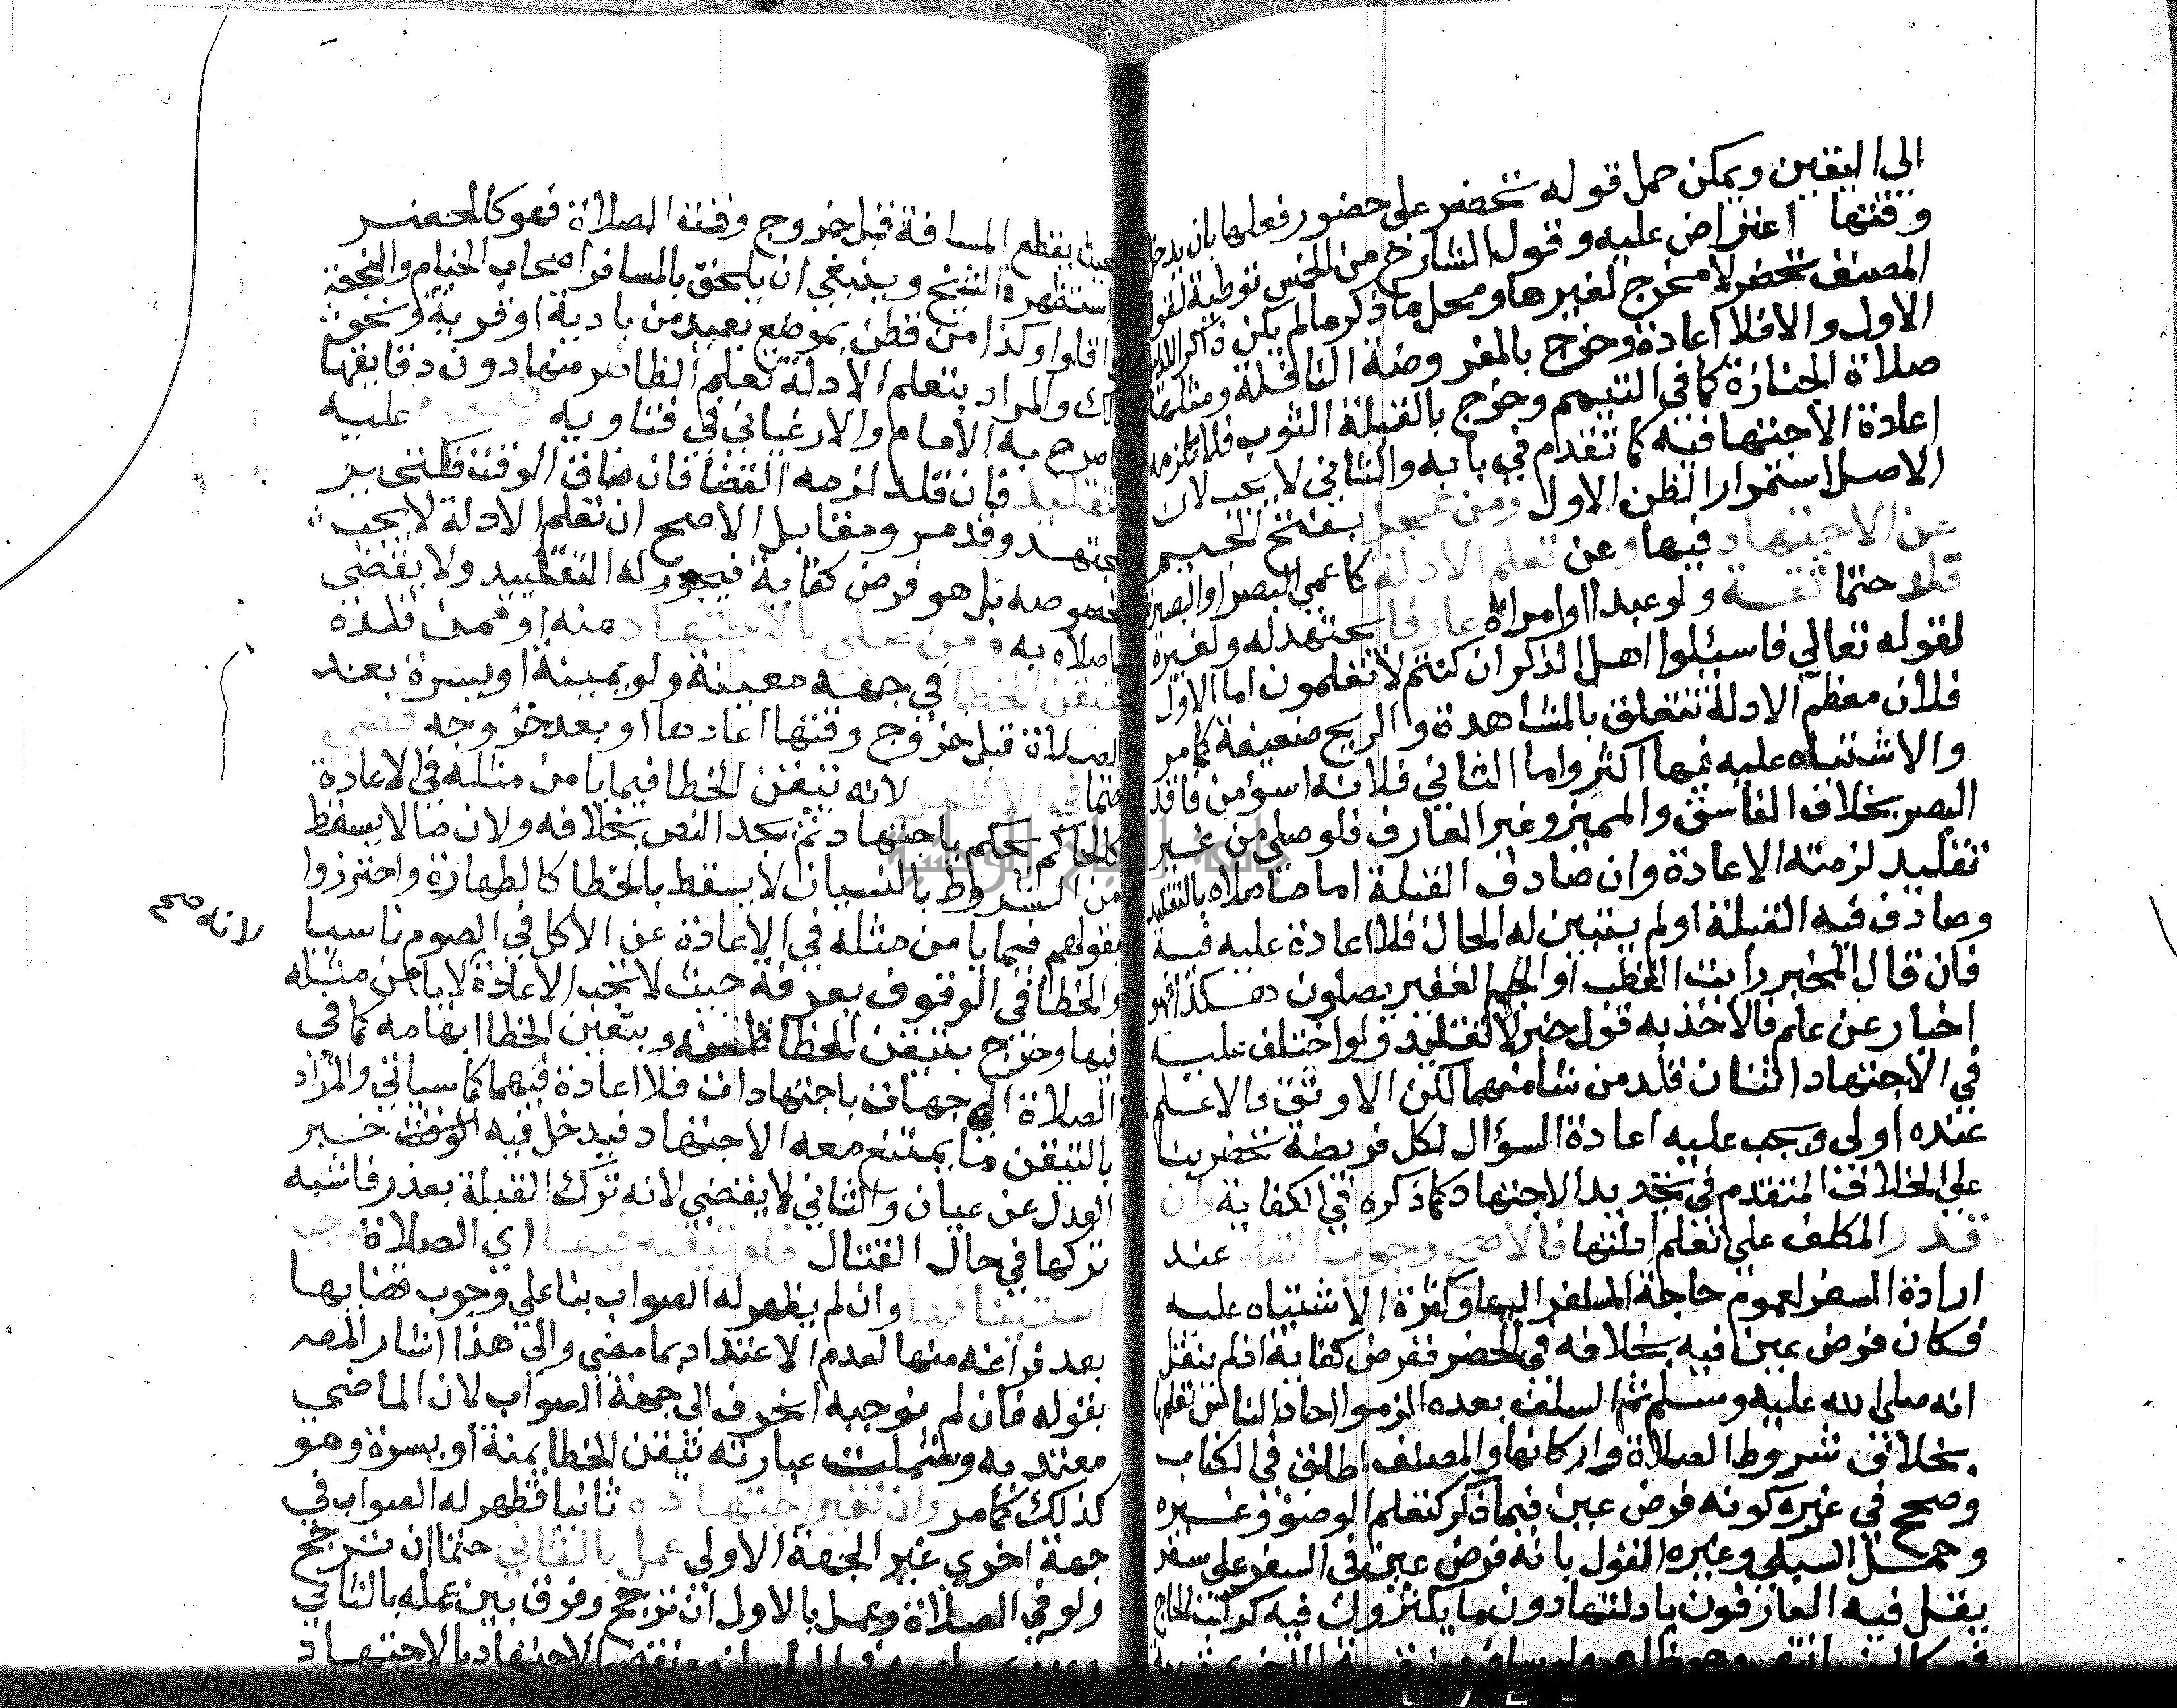 الى اليقين ويمكن حمل قوله تحضر على حضور فعلها بان يدخل
وقتها اعتراض عليه وقول الشارح من الخمس توطية لقول
المصنف تحضر لا مخرج لغيرها ومحل ما ذكر ما لم يكن ذاكر الدليل
الاول والا فلا اعادة وخرج بالمفروضة النافلة ومثلها
صلاة الجنازة كما في التيمم وخرج بالقبلة الثوب فلا تلزمه
اعادة الاجتهاد فيه كما تقدم في بابه والثاني لا يجب لان
الاصل استمرار الظن الاول ومن عجز بفتح الجيم
عن الاجتهاد فيها وعن تعلم الادلة كاعمى البصر او البصيرة
قلد حتما ثقة ولو عبدا او امراة عارفا يجتهد له ولغيره
لقوله تعالى فاسئلوا اهل الذكر ان كنتم لا تعلمون اما الاول
فلان معظم الادلة تتعلق بالمشاهدة والريح ضعيفة كما مر
والاشتباه عليه فيها اكثر واما الثاني فلانه اسوء من فاقد
البصر بخلاف الفاسق والمميز وغير العارف فلو صلى من غير
تقليد لزمته الاعادة وان صادف القبلة اما ما صلاه بالتقليد
وصادف فيه القبلة او لم يتبين له الحال فلا اعادة عليه فيه
فان قال المخبر رايت القطب او الجم الغفير يصلون هكذا فهو
اخبار عن علم فالاخذ به قبول خبر لا تقليد ولو اختلف عليه
في الاجتهاد اثنان قلد من شا منهما لكن الاوثق والاعلم
عنده اولى ويجب عليه اعادة السؤال لكل فريضة تحضر بنا
على الخلاف المتقدم في تجديد الاجتهاد كما ذكره في الكفاية وان
قدر المكلف على تعلم ادلتها فالاصح وجوب التعلم عند
ارادة السفر لعموم حاجة المسافر اليها وكثرة الاشتباه عليه
فكان فرض عين فيه بخلافه في الحضر ففرض كفاية اذ لم ينقل
انه صلى الله عليه وسلم ثم السلف بعده الزموا احاد الناس تعلمها
بخلاف شروط الصلاة واركانها والمصنف اطلق في الكتاب
وصحح في غيره كونه فرض عين فيما ذكر كتعلم الوضوء وغيره
وحمل السبكي وغيره القول بانه فرض عين في السفر على سفر
يقل فيه العارفون بادلتها دون ما يكثرون فيه كركب الحاج
حيث يقطع المسافة قبل خروج وقت الصلاة فهو كالحضر
استظهره الشيخ وينبغي ان يلحق بالمسافر اصحاب الخيام والنجعة
اذا قلوا وكذا من قطن بموضع بعيد من بادية او قرية ونحو
ذلك والمراد بتعلم الادلة تعلم الظاهر منها دون دقايقها
كما صرح به الامام والارغياني في فتاويه عليه
التقليد فان قلد لزمه القضا فان ضاق الوقت فكتحير
مجتهد وقد مر ومقابل الاصح ان تعلم الادلة لا يجب
بخصوصه بل هو فرض كفاية فيجوز له التقليد ولا يقضي
ما صلاه به ومن صلى بالاجتهاد منه او ممن قلده
فتيقن الخطا في جهة معينة ولو يمينة او يسرة بعد
الصلاة قبل خروج وقتها اعادها او بعد خروجه قضى
حتما في الاظهر لانه تيقن الخطا فيما يامن مثله في الاعادة
كالحاكم يحكم باجتهاد ثم يجد النص بخلافه ولان ما لا يسقط
من الشروط بالنسيان لا يسقط بالخطا كالطهارة واحترزوا
بقولهم فيما يامن مثله في الاعادة عن الاكل في الصوم ناسيا
والخطا في الوقوف بعرفة حيث لا تجب الاعادة لانه صح لا يامن مثله
فيها وخرج بتيقن الخطا ظنه وبتعين الخطا ابهامه كما في
الصلاة الى جهات باجتهادات فلا اعادة فيهما كما سياتي والمراد
بالتيقن ما يمتنع معه الاجتهاد فيدخل فيه خبر
العدل عن عيان والثاني لا يقضي لانه ترك القبلة بعذر فاشبه
تركها في حال القتال فلو تيقنه فيها اي الصلاة وجب
استينافها وان لم يظهر له الصواب بنا على وجوب قضايها
بعد فراغه منها لعدم الاعتداد بما مضى والى هذا اشار المصـ
بقوله فان لم نوجبه انحرف الى جهة الصواب لان الماضي
معتد به وشملت عبارته تيقن الخطا يمنة او يسرة وهو
كذلك كما مر وان تغير اجتهاده ثانيا فظهر له الصواب في
جهة اخرى غير الجهة الاولى عمل بالثاني حتما ان ترجح
ولو في الصلاة وعمل بالاول ان ترجح وفرق بين عمله بالثاني